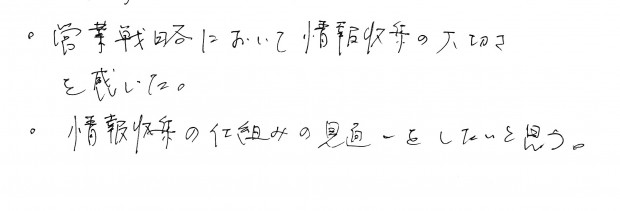 ・営業戦略において情報収集の大切さ
を感じた。
・情報収集の仕組みの見直しをしたいと思う。